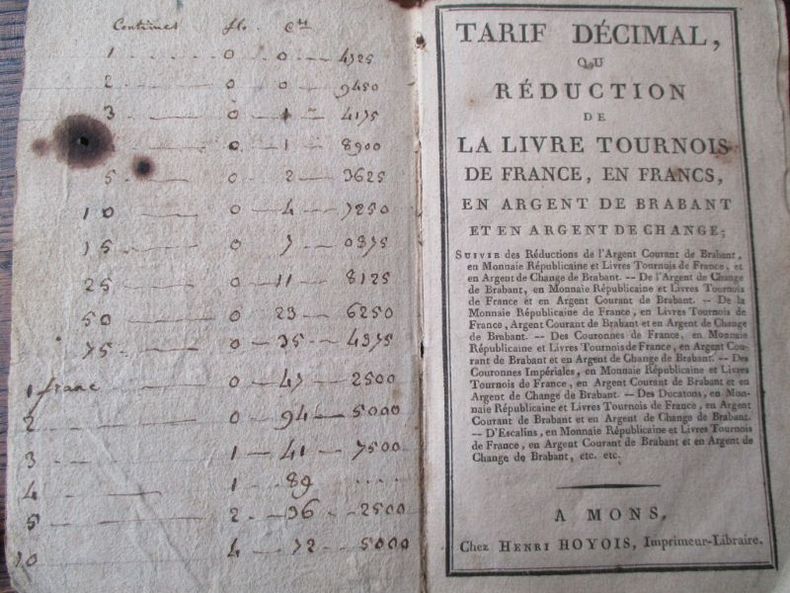 Centimes flo. Cts
1 — 0 — 0 — 4725
2 — 0 — 0 — 9450
3 — 0 — 1 — 4175
— 0 — 1 — 8900
5 — 0 — 2 — 3625
10 — 0 — 4 — 7250
15 — 0 — 7 — 0875
25 — 0 — 11 — 8125
50 — 0 — 23 — 6250
75 — 0 — 35 — 4375
1 franc — 0 — 47 — 2500
2 — 0 — 94 — 5000
3 — 1 — 41 — 7500
4 — 1 — 89 ....
5 — 2 — 36 — 2500
10 — 4 — 72 — 5000
TARIF DÉCIMAL,
OU
RÉDUCTION
DE
LA LIVRE TOURNOIS
DE FRANCE, EN FRANCS,
EN ARGENT DE BRABANT
ET EN ARGENT DE CHANGE;
SUIVIE des Réductions de l'Argent Courant de Brabant,
en Monnaie Républicaine et Livres Tournois de France, et
en Argent de Change de Brabant. — De l'Argent de Change
de Brabant, en Monnaie Républicaine et Livres Tournois
de France et en Argent Courant de Brabant. — De la
Monnaie Républicaine de France, en Livres Tournois de
France, Argent Courant de Brabant et en Argent de Change
de Brabant. — Des Couronnes de France, en Monnaie
Républicaine et Livres Tournois de France, en Argent Cou-
rant de Brabant et en Argent de Change de Brabant. — Des
Couronnes Impériales, en Monnaie Républicaine et Livres
Tournois de France, en Argent Courant de Brabant et en
Argent de Change de Brabant. — Des Ducatons, en Mon-
naie Républicaine et Livres Tournois de France, en Argent
Courant de Brabant et en Argent de Change de Brabant.
— D'Escalins, en Monnaie Républicaine et Livres Tournois
de France, en Argent Courant de Brabant et en Argent de
Change de Brabant, etc. etc.
A MONS,
Chez HENRI HOYOIS, Imprimeur-Libraire.